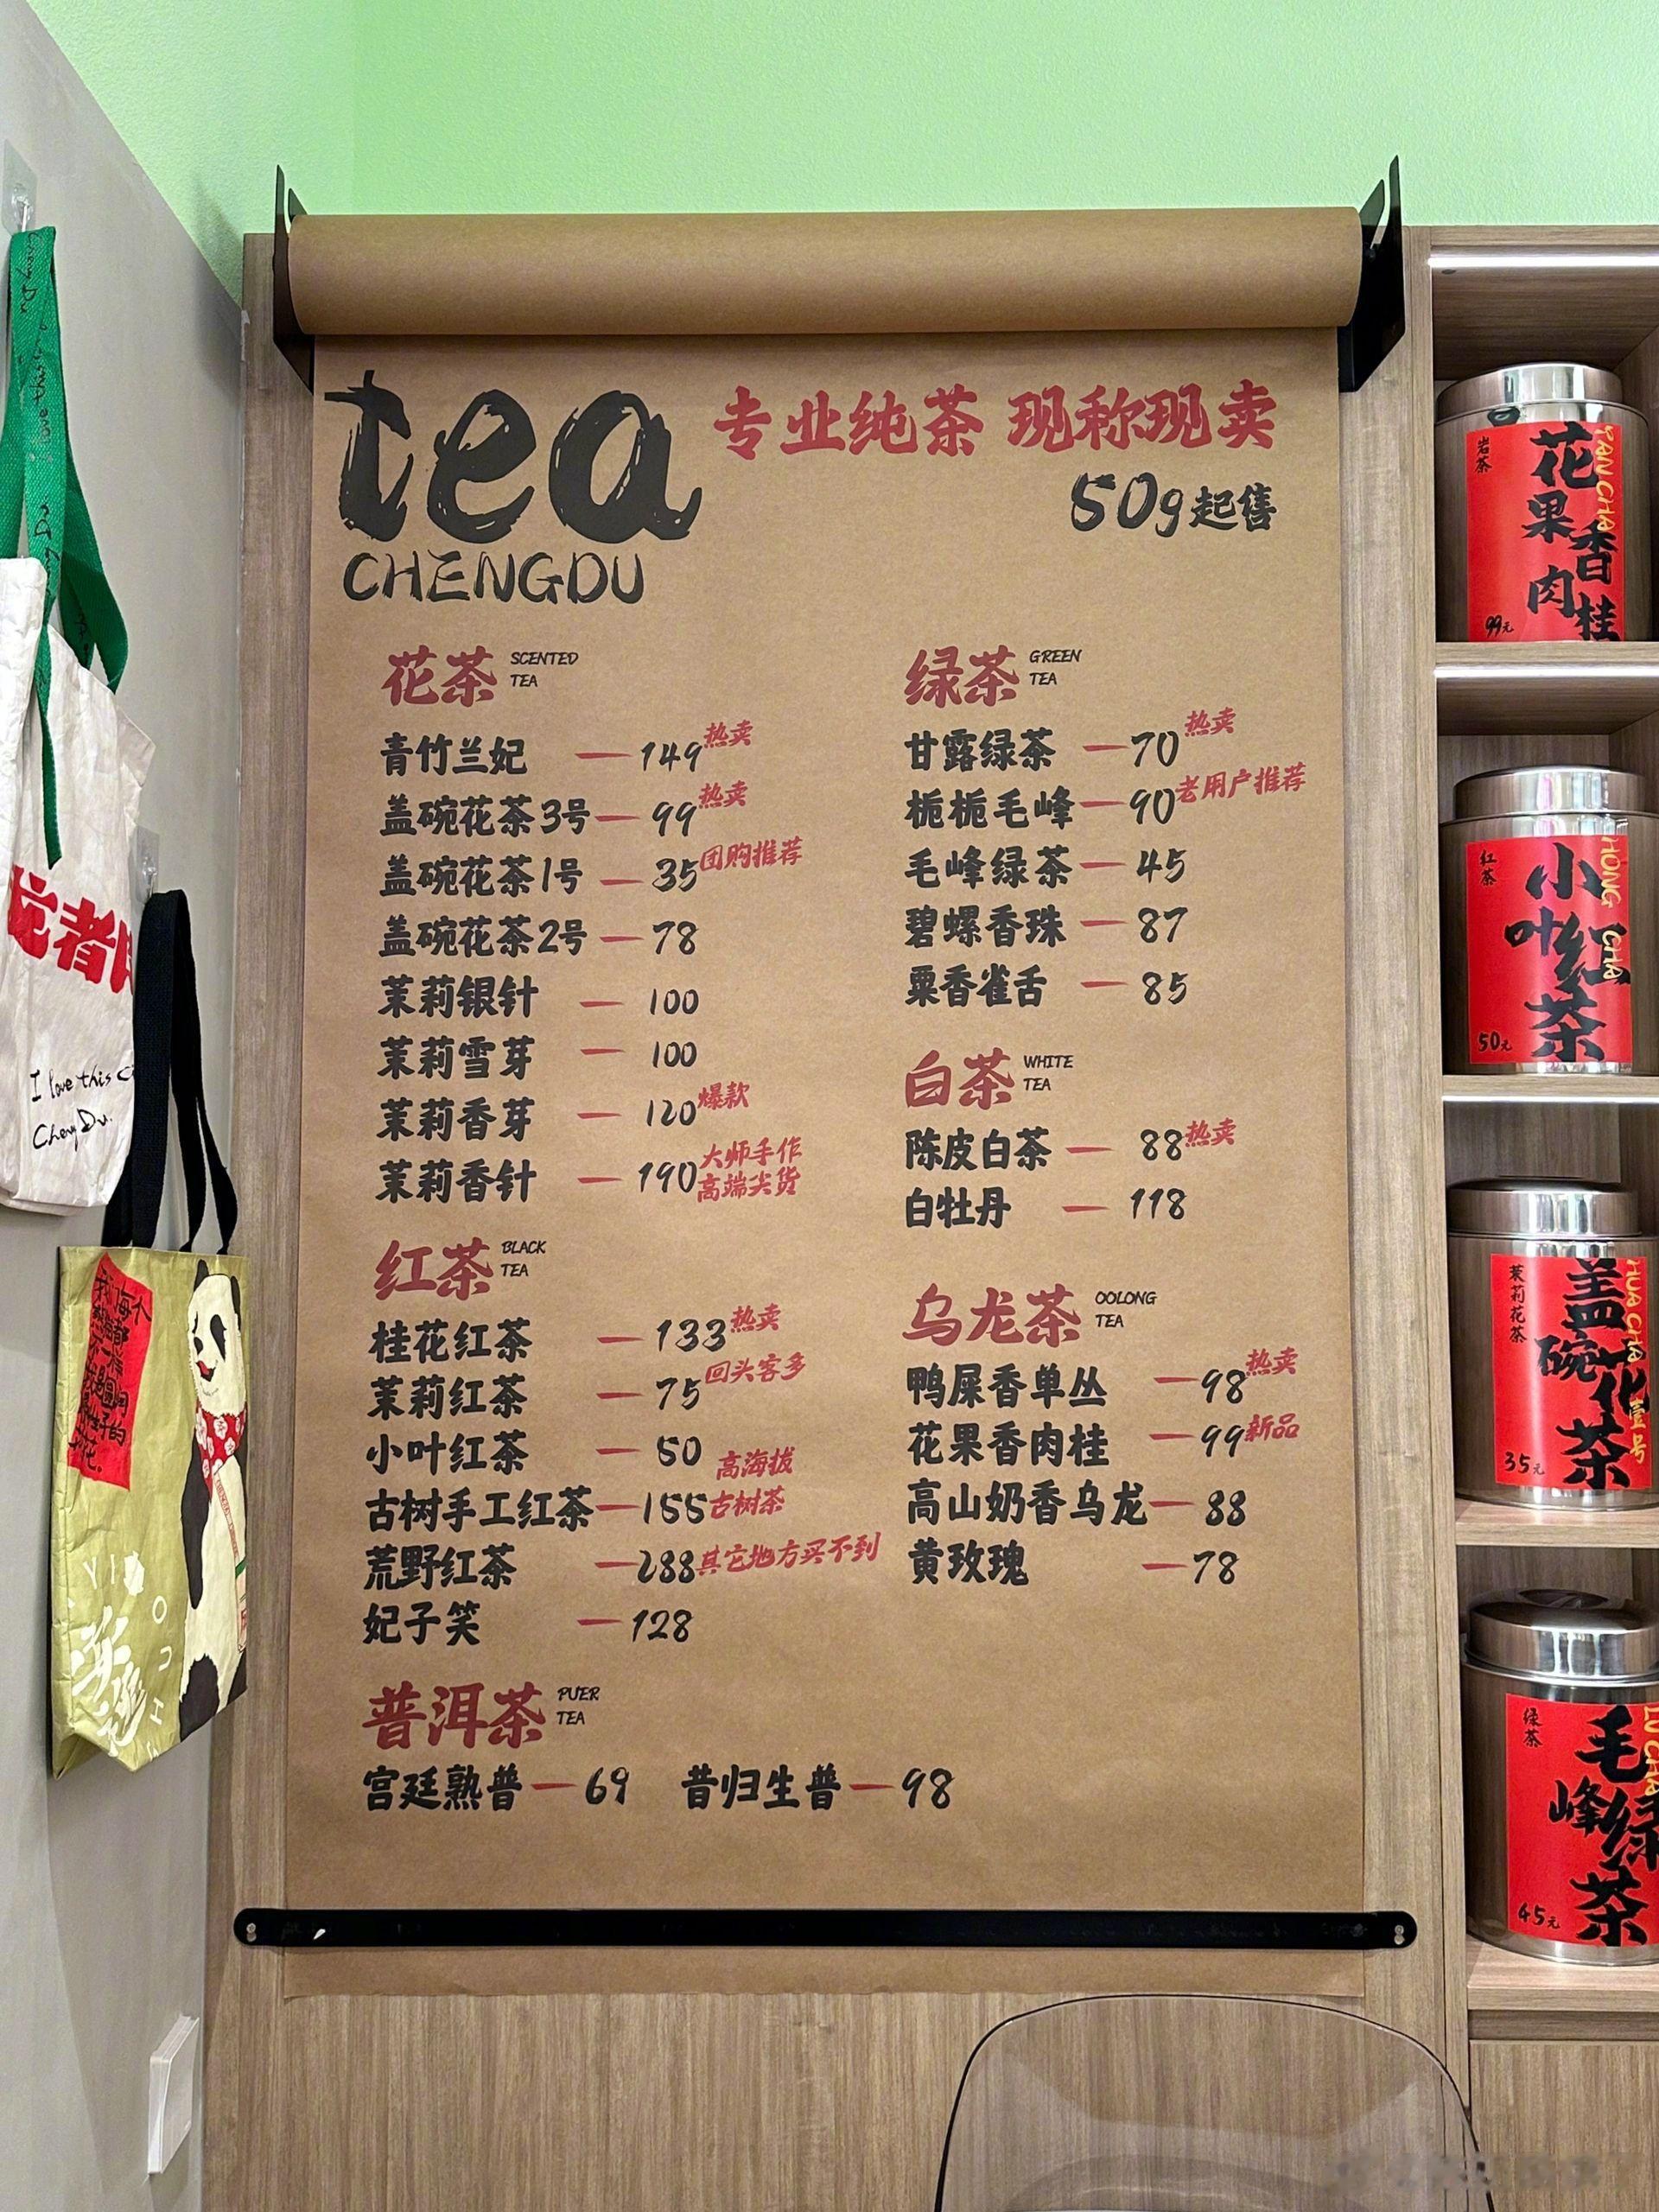 tea
CHENGDU
专业纯茶 现称现卖
50g起售
花茶 SCENTED TEA
青竹兰妃 — 149 热卖
盖碗花茶3号 — 99 热卖
盖碗花茶1号 — 35 团购推荐
盖碗花茶2号 — 78
茉莉银针 — 100
茉莉雪芽 — 100
茉莉香芽 — 120 爆款
茉莉香针 — 190 大师手作 高端尖货
红茶 BLACK TEA
桂花红茶 — 133 热卖
茉莉红茶 — 75 回头客多
小叶红茶 — 50
古树手工红茶 — 155 高海拔 古树茶
荒野红茶 — 288 其它地方买不到
妃子笑 — 128
普洱茶 PUER TEA
宫廷熟普 — 69 昔归生普 — 98
绿茶 GREEN TEA
甘露绿茶 — 70 热卖
栀栀毛峰 — 90 老用户推荐
毛峰绿茶 — 45
碧螺香珠 — 87
粟香雀舌 — 85
白茶 WHITE TEA
陈皮白茶 — 88 热卖
白牡丹 — 118
乌龙茶 OOLONG TEA
鸭屎香单丛 — 98 热卖
花果香肉桂 — 99 新品
高山奶香乌龙 — 88
黄玫瑰 — 78
岩茶
花果香肉桂
YAN CHA
99元
红茶
小叶红茶
HONG CHA
50元
茉莉花茶
盖碗花茶
HUA CHA
壹号
35元
绿茶
毛峰绿茶
45元
I love this
ChengDu.